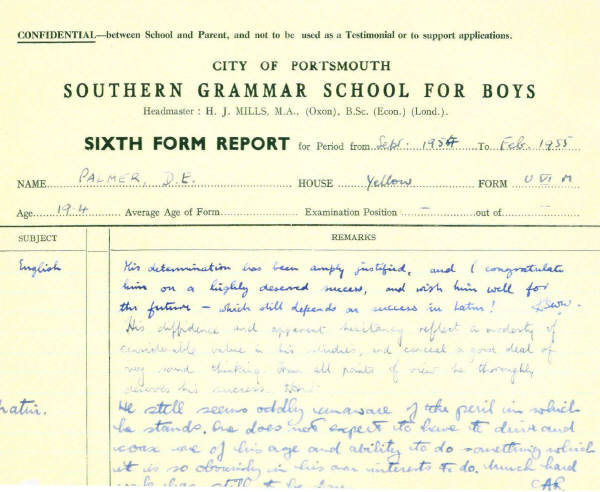 CONFIDENTIAL—between School and Parent, and not to be used as a Testimonial or to support applications.
CITY OF PORTSMOUTH
SOUTHERN GRAMMAR SCHOOL FOR BOYS
Headmaster : H. J. MILLS, M.A., (Oxon), B.Sc. (Econ.) (Lond.).
SIXTH FORM REPORT for Period from Sept: 1954 To Feb. 1955
NAME PALMER, D.E. HOUSE Yellow FORM U VI M
Age 19.4 Average Age of Form Examination Position — out of —
SUBJECT REMARKS
English His determination has been amply justified, and I congratulate
him on a highly deserved success, and wish him well for
the future – which still depends on success in Latin!
His diffidence and apparent hesitancy reflect a modesty of
considerable value in his studies, and conceal a good deal of
very sound thinking. From all points of view he thoroughly
deserves his success.
Latin. He still seems oddly unaware of the peril in which
he stands. One does not expect to have to drive and
coax one of his age and ability to do something which
it is so obviously in his own interests to do. Much hard
work has still to be done.